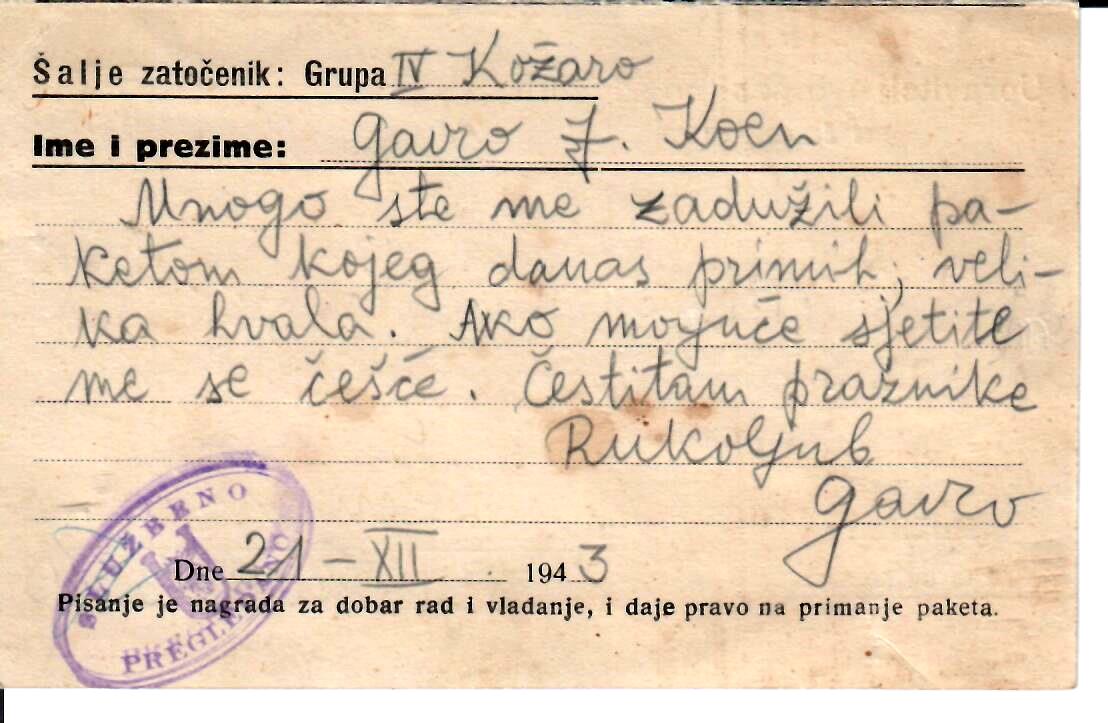 Šalje zatočenik: Grupa IV Kožaro
Ime i prezime: Gavro J. Koen
Mnogo ste me zadužili pa-
ketom kojeg danas primih, veli-
ka hvala. Ako moguće sjetite
me se češće. Čestitam praznike
Rukoljub
Gavro
SLUŽBENO
U
PREGLEDANO
Dne 21-XII 1943
Pisanje je nagrada za dobar rad i vladanje, i daje pravo na primanje paketa.